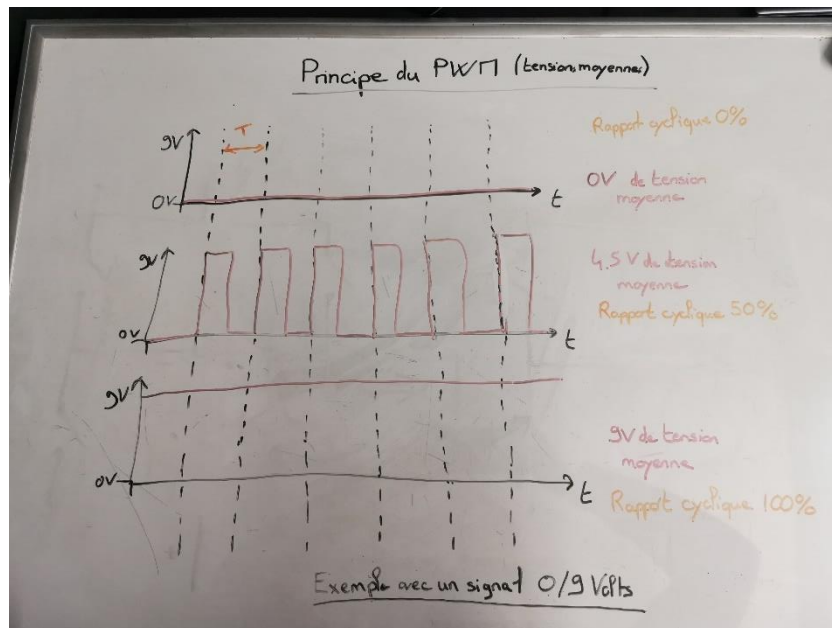 Principe du PWM (tensions moyennes)
T
Rapport cyclique 0%
9V
0V
t
0V de tension
moyenne
9V
0V
t
4.5 V de tension
moyenne
Rapport cyclique 50%
9V
0V
t
9V de tension
moyenne
Rapport cyclique 100%
Exemple avec un signal 0/9 Volts